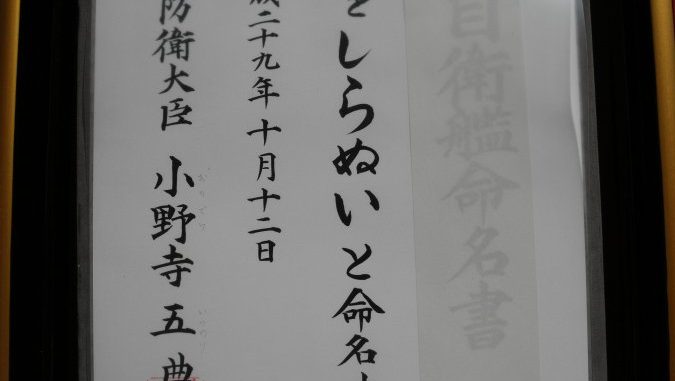 自衛艦命名書
をしらぬいと命名
成二十九年十月十二日
防衛大臣 小野寺五典
おのでら いつのり